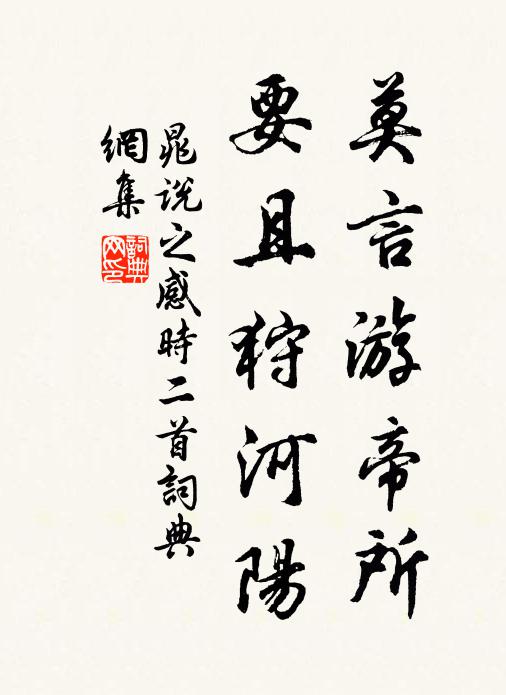 莫言游帝所
要且狩河陽
晁说之感時二首詞典
網集
詞典
网印